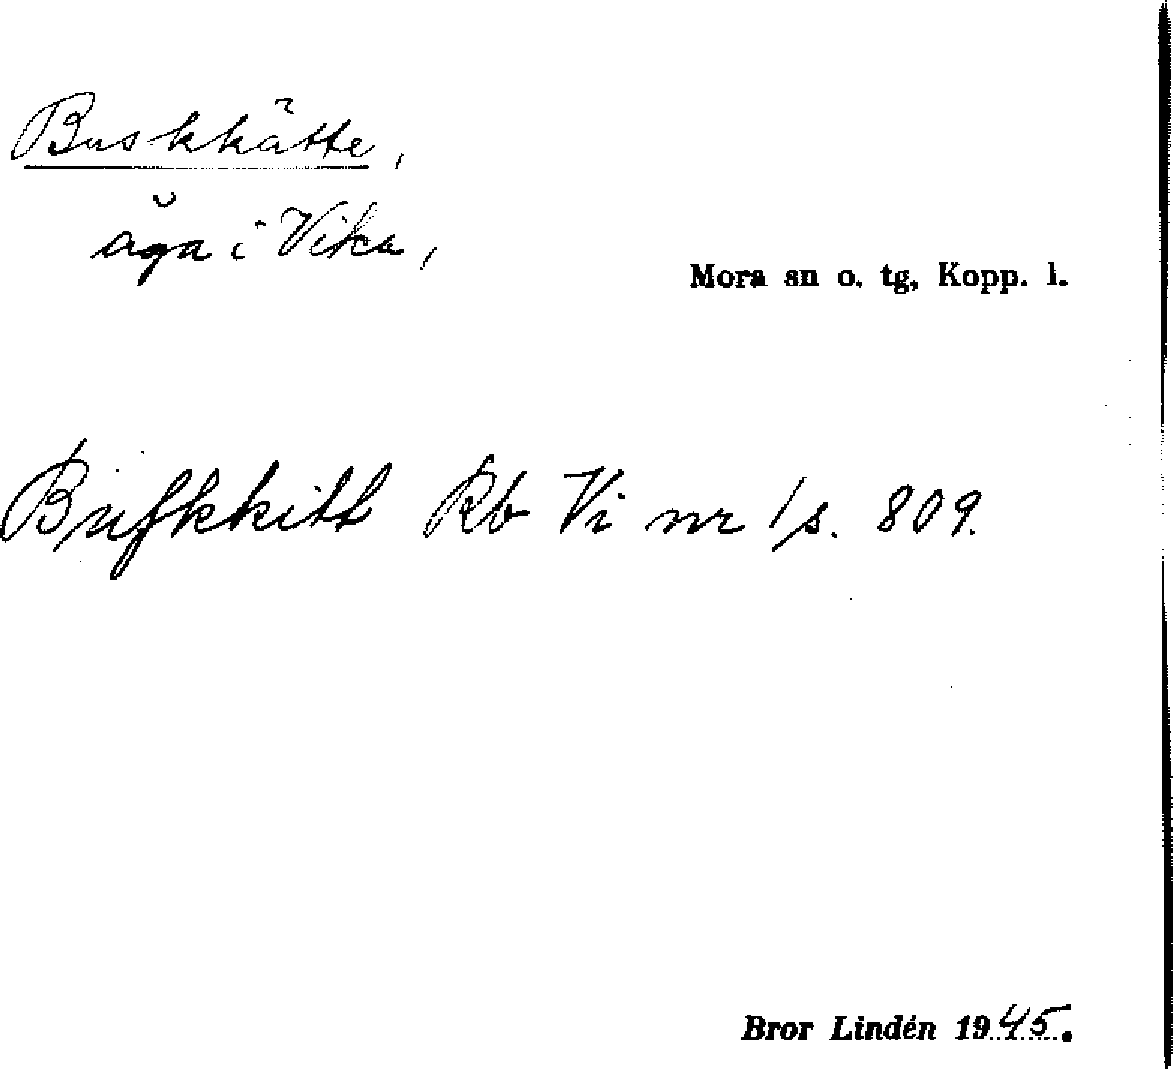 Buskkätte,
åga i Vika,
Mora sn o. tg, Kopp. l.
Busfkkitt Rb Vi nr 1/s. 809.
Bror Lindén 1945.